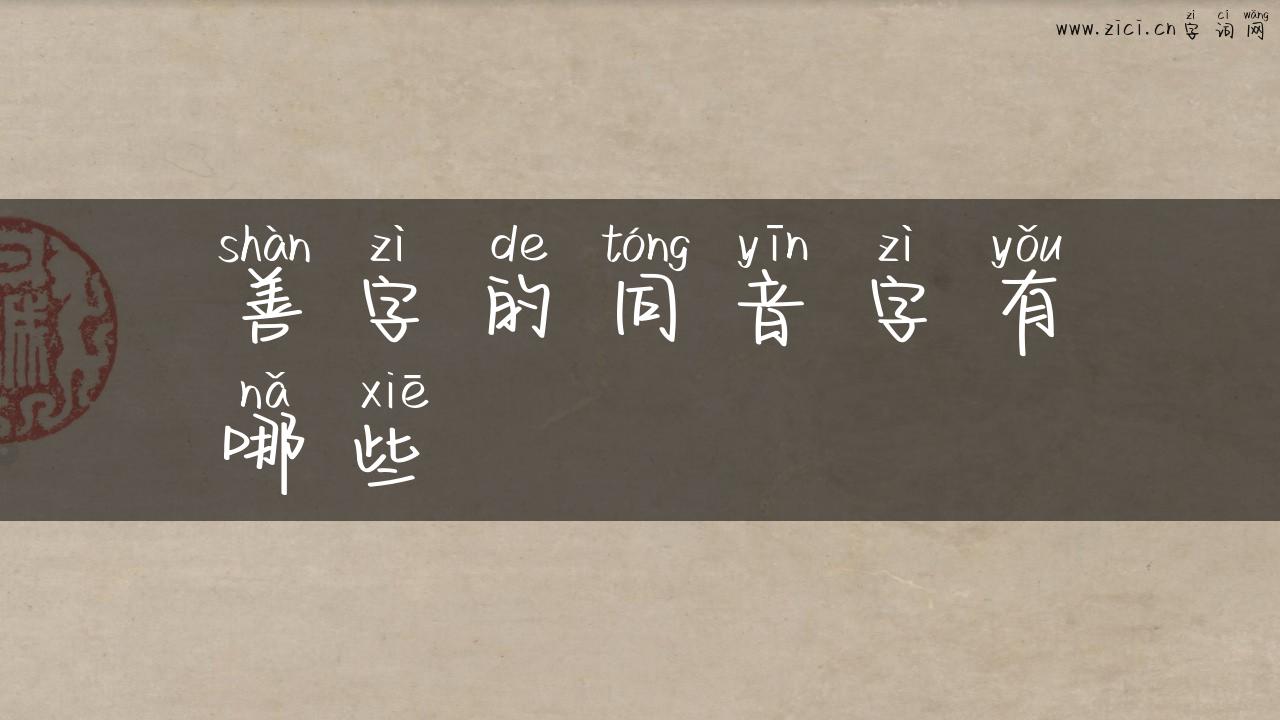 zì cí wǎng
www.zici.cn 字 词 网
shàn zì de tóng yīn zì yǒu
善 字 的 同 音 字 有
nǎ xiē
哪 些